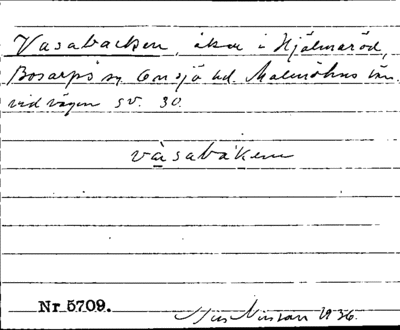 Vasabacken, åker i Hjälmaröd,
Bosarps sn Onsjö hd. Malmöhus län.
vid vägen SV. 30.
vàsabàkenn
Nr 5709.
Nils Nilsson 1936.